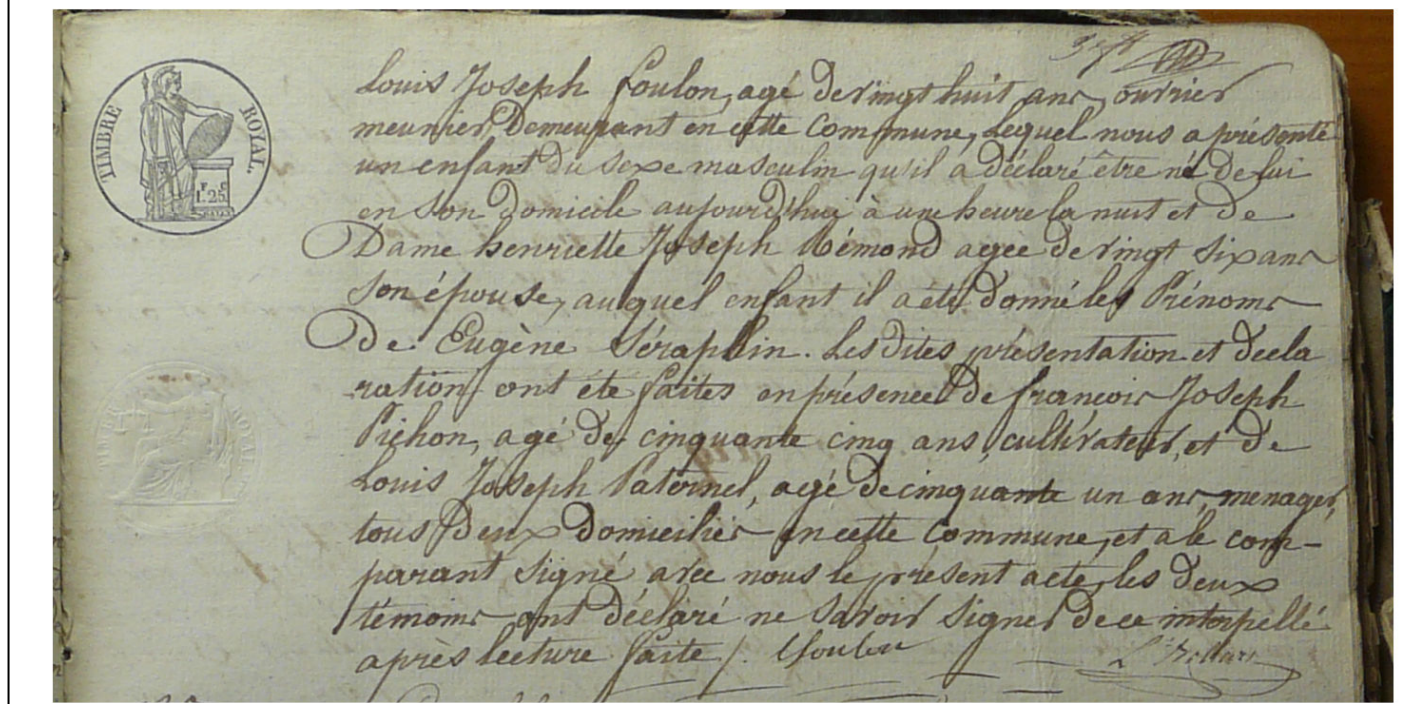 TIMBRE ROYAL.
F. C.
1. 25.
Louis Joseph foulon, agé de vingt huit ans, ouvrier
meunier, Demeurant en cette Commune, Lequel nous a présenté
un enfant du sexe masculin qu'il a déclaré être né de lui
en son domicile aujourd'hui à une heure la nuit et de
Dame henriette Joseph Rémond agée de vingt six ans
son épouse, auquel enfant il a été donné les Prénoms
De Eugène Séraphin. Les dites présentation et decla
ration ont été faites en présence de françois Joseph
Pichon, agé de cinquante cinq ans, cultivateur, et de
Louis Joseph Paternel, agé de cinquante un ans, menager,
tous deux domiciliés en cette Commune, et a le com-
parant signé avec nous le présent acte, les deux
témoins ont déclaré ne savoir signer de ce interpellé
après lecture faite /. Lfoulon